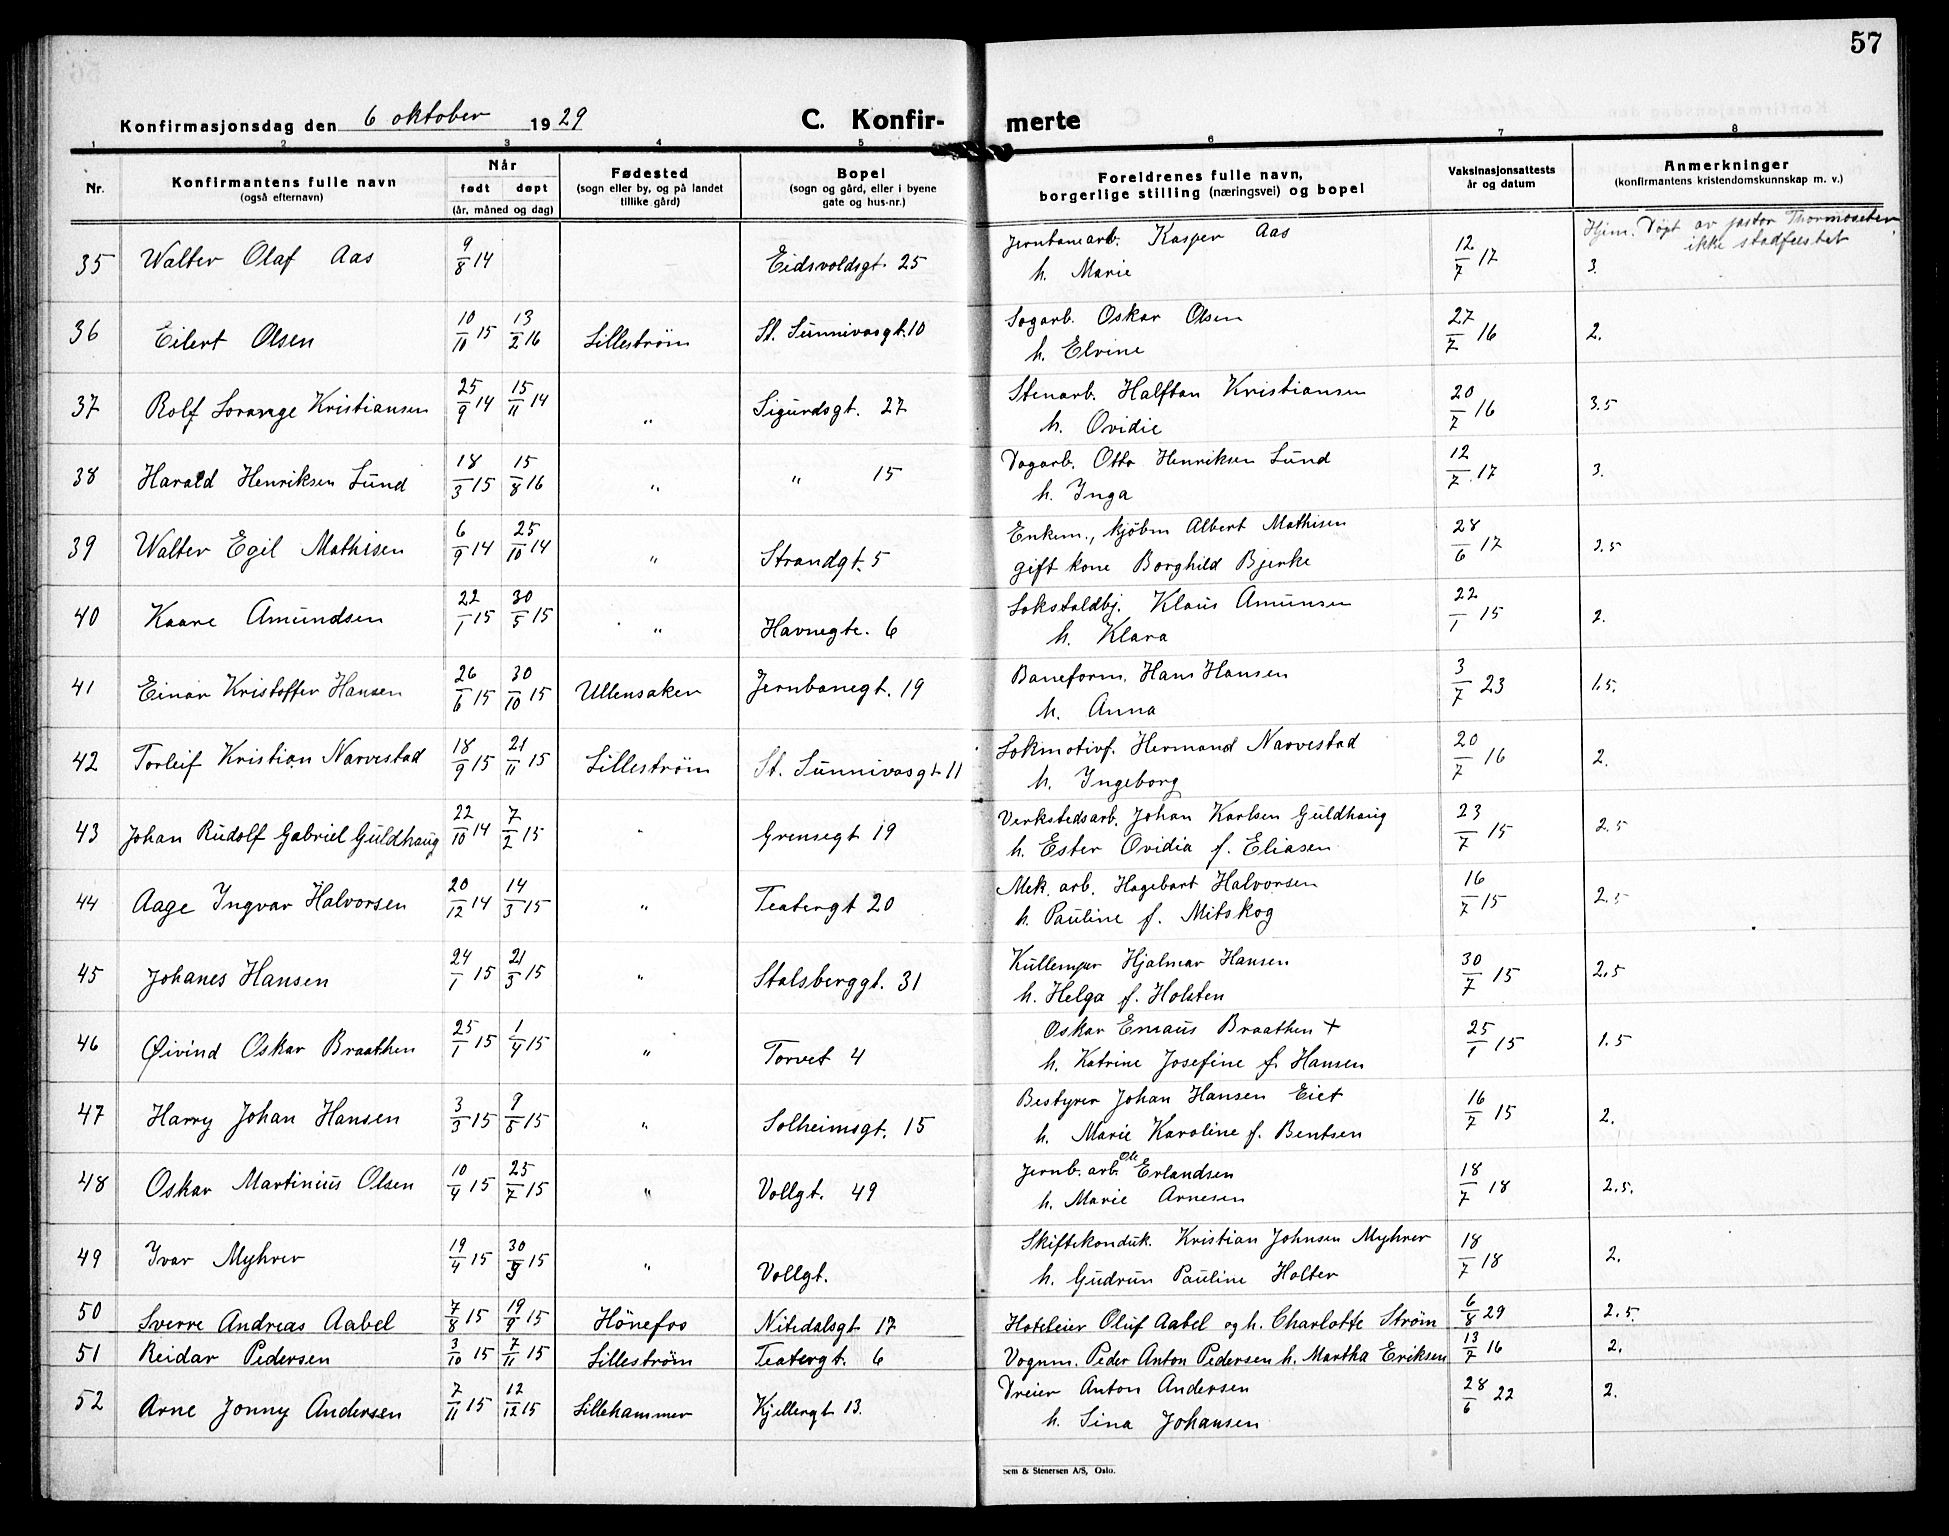 57
Konfirmasjonsdag den 6 oktober 1929
C. Konfir- merte
1 2 3 4 5 6 7 8
Nr.
Konfirmantens fulle navn
(også efternavn)
Når
født døpt
(år, måned og dag)
Fødested
(sogn eller by, og på landet
tillike gård)
Bopel
(sogn og gård, eller i byene
gate og hus-nr.)
Foreldrenes fulle navn,
borgerlige stilling (næringsvei) og bopel
Vaksinasjonsattests
år og datum
Anmerkninger
(konfirmantens kristendomskunnskap m. v.)
35 Walter Olaf Aas 9/8 14 Eidsvoldsgt. 25 Jernbanearb. Kasper Aas 12/7 17 Hjem. Døpt av pastor Thormodsæter
ikke stadfæstet
h. Marie 3.
36 Eilert Olsen 10/10 15 13/2 16 Lilleström St. Sunnivasgt. 10 Sagarb. Oskar Olsen 27/7 16 2.
h. Elvine
37 Rolf Kristiansen 25/9 14 15/11 14 " Sigurdsgt. 27 Stenarb. Halftan Kristiansen 20/7 16 3.5
h. Ovidie
38 Harald Henriksen Lund 18/3 15 15/8 16 " " 15 Dagarb. Otto Henriksen Lund 12/7 17 3.
h. Inga
39 Walter Egil Mathisen 6/9 14 25/10 14 " Strandgt. 5 Enkem., kjøbm Albert Mathisen 28/6 17 2.5
gift kone Borghild Bjerke
40 Kaare Amundsen 22/1 15 30/5 15 " Havnegte. 6 Lokstaldbj. Klaus Amunsen 22/1 15 2.
h. Klara
41 Einar Kristoffer Hansen 26/6 15 30/10 15 Ullensaker Jernbanegt. 19 Baneform. Hans Hansen 3/7 23 1.5.
h. Anna
42 Torleif Kristian Narvestad 18/9 15 21/11 15 Lilleström St. Sunnivasgt 11 Lokmotivf. Hermand Narvestad 20/7 16 2.
h. Ingeborg
43 Johan Rudolf Gabriel Guldhaug 22/10 14 7/2 15 " Grensegt 19 Verkstedsarb. Johan Karlsen Guldhaug 23/7 15 2.5
h. Ester Ovidia f. Eliasen
44 Aage Ingvar Halvorsen 20/12 14 14/3 15 " Teatergt 20 Mek. arb. Hagebart Halvorsen 16/7 15 2.5
h. Pauline f. Mitskog
45 Johanes Hansen 24/1 15 21/3 15 " Stalsberggt. 31 Kullemper Hjalmar Hansen 30/7 15 2.5
h. Helga f. Holsten
46 Øivind Oskar Braathen 25/1 15 1/4 15 " Torvet 4 Oskar Emaus Braathen + 25/1 15 1.5
h. Katrine Josefine f. Hansen
47 Harry Johan Hansen 3/3 15 9/5 15 " Solheimsgt. 15 Bestyrer Johan Hansen Eiet 16/7 15 2.
h. Marie Karoline f. Bentsen
48 Oskar Martinius Olsen 10/4 15 25/7 15 " Vollgt. 49 Jernb. arb. Ole Erlandsen 18/7 18 2.5.
h. Marie Arnesen
49 Ivar Myhrer 19/4 15 30/5 15 " Vollgt. Skiftekonduk. Kristian Johnsen Myhrer 18/7 18 2.
h. Gudrun Pauline Holter
50 Sverre Andreas Aabel 7/8 15 19/9 15 Hönefos Nitedalsgt 17 Hoteleier Oluf Aabel og h. Charlotte Strøm 6/8 29 2.5.
51 Reidar Pedersen 3/10 15 7/11 15 Lilleström Teatergt. 6 Vognm. Peder Anton Pedersen h. Martha Eriksen 13/7 16 2.
52 Arne Jonny Andersen 7/11 15 12/12 15 Lillehammer Kjellergt 13. Dreier Anton Andersen 28/6 22 2.
h. Lina Johansen
Sem & Stenersen A/S, Oslo.